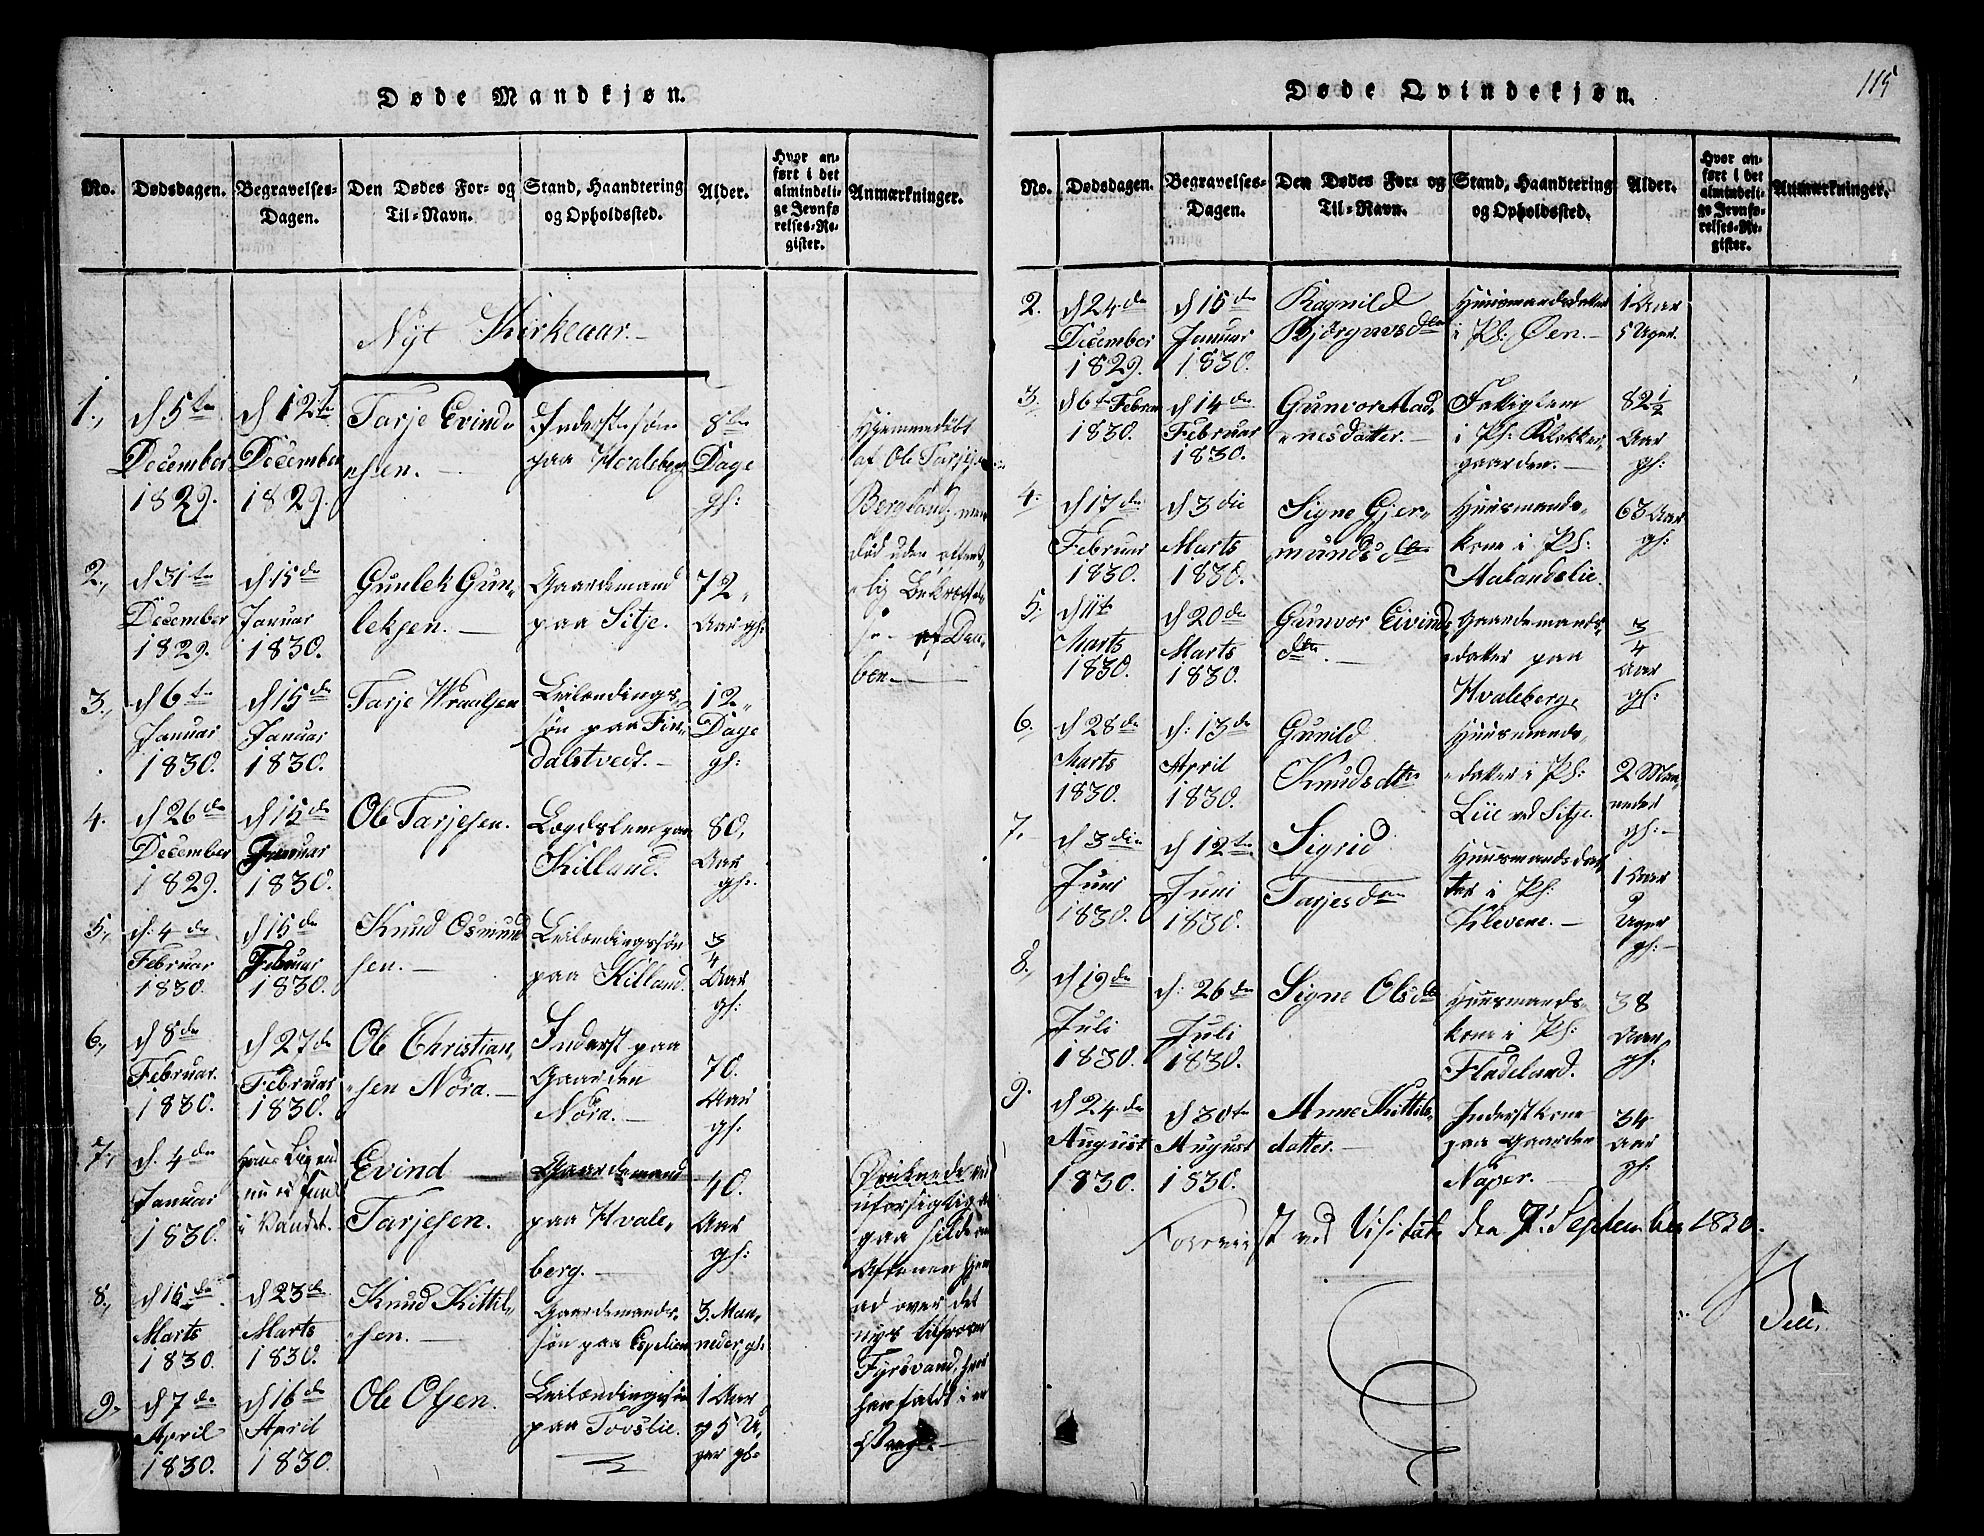 Døde Mandkjøn.
No.
Dødsdagen.
Begravelses-
Dagen.
Den Dødes For- og
Til-Navn.
Stand, Haandtering
og Opholdssted.
Alder.
Hvor an-
ført i det
almindeli-
ge Jevnfø
relses-Re-
gister.
Anmærkninger.
Nyt Kirkeaar.
1.,
d 5te
December
1829.
d 12te
December
1829.
Tarje Evind-
sen.
Inderstsøn
paa Hvalsberg
8te
Dage
gl:
Hjemmedøbt
af Ole Tarjesen
Bergland, men
død uden
2.,
d 31te
December
1829.
d 15de
Januar
1830.
Gunlek Gun-
leksen.
Gaardemand
paa Sitje.
72
Aar gl:
3.,
d 6te
Januar
1830.
d 15de
Januar
1830.
Tarje Wraalsen
Leilændings-
søn paa Fin-
dalstvedt.
12
Dage
gl:
4.
d 26de
December
1829.
d 15de
Januar
1830.
Ole Tarjesen.
Lægdslem paa
Killand.
80,
Aar
gl:
5.,
d. 4de
Februar
1830.
d 15de
Februar
1830.
Knud Osmund
sen.
Leilændingssøn
paa Killand.
3/4
Aar
gl:
6.,
d 8de
Februar.
1830.
d 27de
Februar
1830.
Ole Christian-
sen Nora.
Inderst paa
Gaarden
Nora.
70.
Aar
gl:
7.,
d. 4de
Januar
1830.
Hans Lig end
nu ei fund
i Vandet.
Evind
Tarjesen.
Gaardemand
paa Hvale-
berg.
40.
Aar
gl:
Druknede ved
uforsigtig at
gaa silde om
Aftenen hjem
ad over det
nys tilfrosne
Fyrsvand, hvor
han faldt i en
Vaage.
8.,
d 16de
Marts
1830.
d 23de
Marts
1830.
Knud Kittil-
sen.
Gaardemands-
søn paa Espelien
3. Maa-
neder, gl:
9.
d 7de
April
1830.
d 16de
April
1830.
Ole Olsen.
Leilændingssøn
paa Tovslie.
1 Aar
og 5 U-
ger gl:
115
Døde Qvindekjøn.
No.
Dødsdagen.
Begravelses-
Dagen.
Den Dødes For- og
Til-Navn.
Stand, Haandtering
og Opholdssted.
Alder.
Hvor an-
ført i det
almindeli-
ge Jevnfø-
relses-Re-
gister.
Anmærkninger.
2.
d 24de
December
1829.
d 15de
Januar
1830.
Ragnild
Bjørgursdtr
Huusmandsdatter
i Pl: Øen.
1 Aar
5 Uger.
3.
d 6te Februar
1830.
d 14de
Februar
1830.
Gunvor Aad-
nesdatter.
Fattiglem
i Pl: Klokker-
gaarden.
82 1/2
Aar
gl:
4.
d 17de
Februar
1830.
d 3die
Marts
1830.
Signe Gjer-
mundsdtr
Huusmands-
kone i Pl:
Aalandslie.
63 Aar
gl:
5.
d 11te
Marts
1830.
d 20de
Marts
1830.
Gunvor Eivinds
dtr.
Gaardemands-
datter paa
Hvaleberg,
3/4
Aar
gl:
6.
d 28de
Marts
1830.
d: 13de
April
1830.
Gunild
Knudsdttr
Huusmands-
datter i Pl:
Liie ved Sitje.
2 Maa-
neder
gl:
7.
d 3die
Juni
1830.
d 12te
Juni
1830.
Sigrid
Tarjesdtr
Huusmandsdat-
ter i Pl:
Klevene.
1 Aar
9
Uger
gl:
8.
d 19de
Juli
1830.
d: 26de
Juli
1830.
Signe Olsdtr
Huusmands-
kone i Pl:
Fladeland.
38
Aar
gl:
9.
d 24de
August
1830.
d 30te
August
1830.
Anne Kittils-
datter.
Inderstkone
paa Gaarden
Naper.
34
Aar
gl:
Foreviist ved Visitats den 7. September 1830.